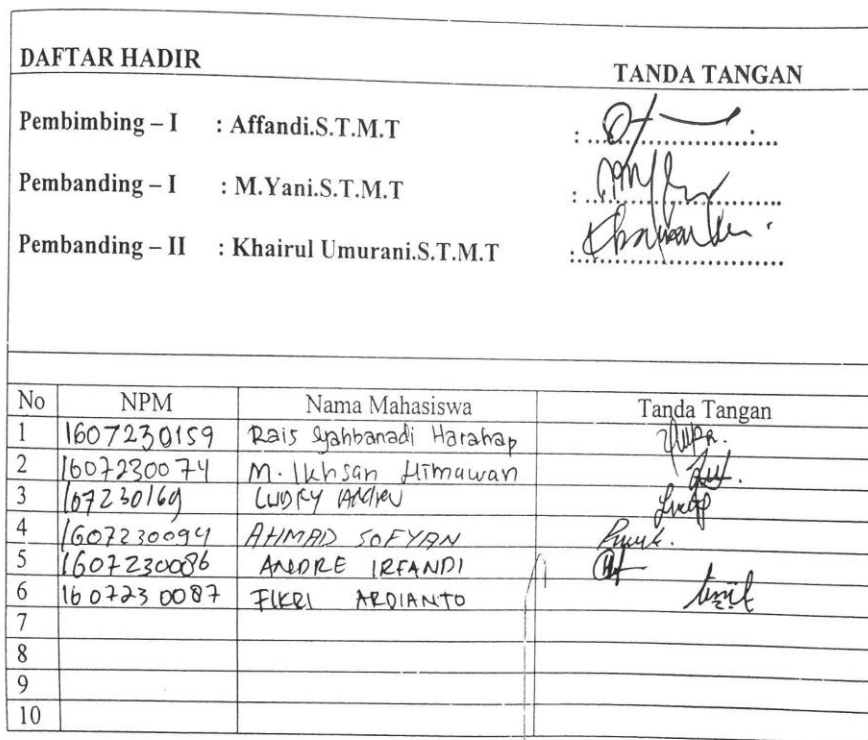 DAFTAR HADIR
TANDA TANGAN
Pembimbing – I : Affandi.S.T.M.T : ..............................
Pembanding – I : M.Yani.S.T.M.T : ..............................
Pembanding – II : Khairul Umurani.S.T.M.T : ..............................
No NPM Nama Mahasiswa Tanda Tangan
1 1607230159 Rais Syahbanadi Harahap
2 1607230074 M. Ikhsan Himawan
3 107230169 LUDRY
4 1607230094 AHMAD SOFYAN
5 1607230086 ANDRE IRFANDI
6 1607230087 FIKRI ARDIANTO
7
8
9
10